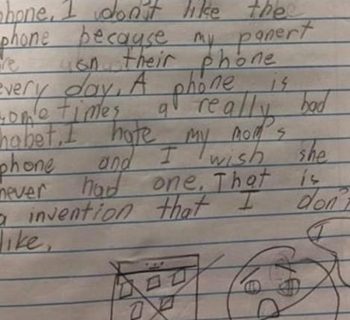 phone. I don't like the
phone because my panert
are usn their phone
every day. A phone is
sometimes a really bad
habet. I hate my mom's
phone and I wish she
never had one. That is
a invention that I don't
like.
I